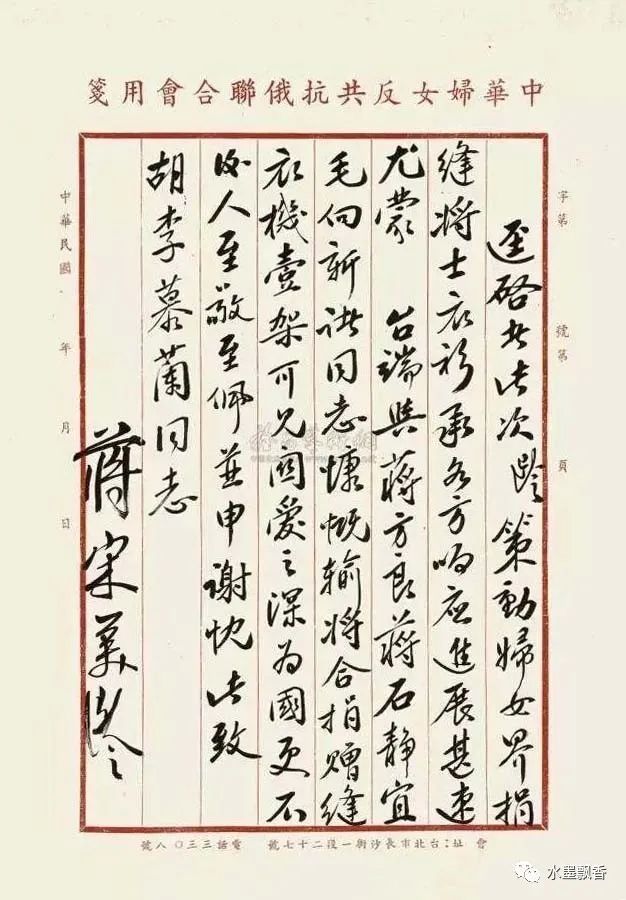 中華婦女反共抗俄聯合會用箋
字第 號第 頁
逕啓者此次齡策動婦女界捐
縫將士衣衫承各方响应進展甚速
尤蒙 台端與蔣方良蔣石靜宜
毛向新諸同志慷慨輸將合捐赠縫
衣機壹架可見関愛之深為國更不
後人至敬至佩並申謝忱此致
胡李慕蘭同志
蔣宋美齡
中華民國 年 月 日
會址:台北市長沙街一段二十七號 電話三三〇八號
水墨飘香